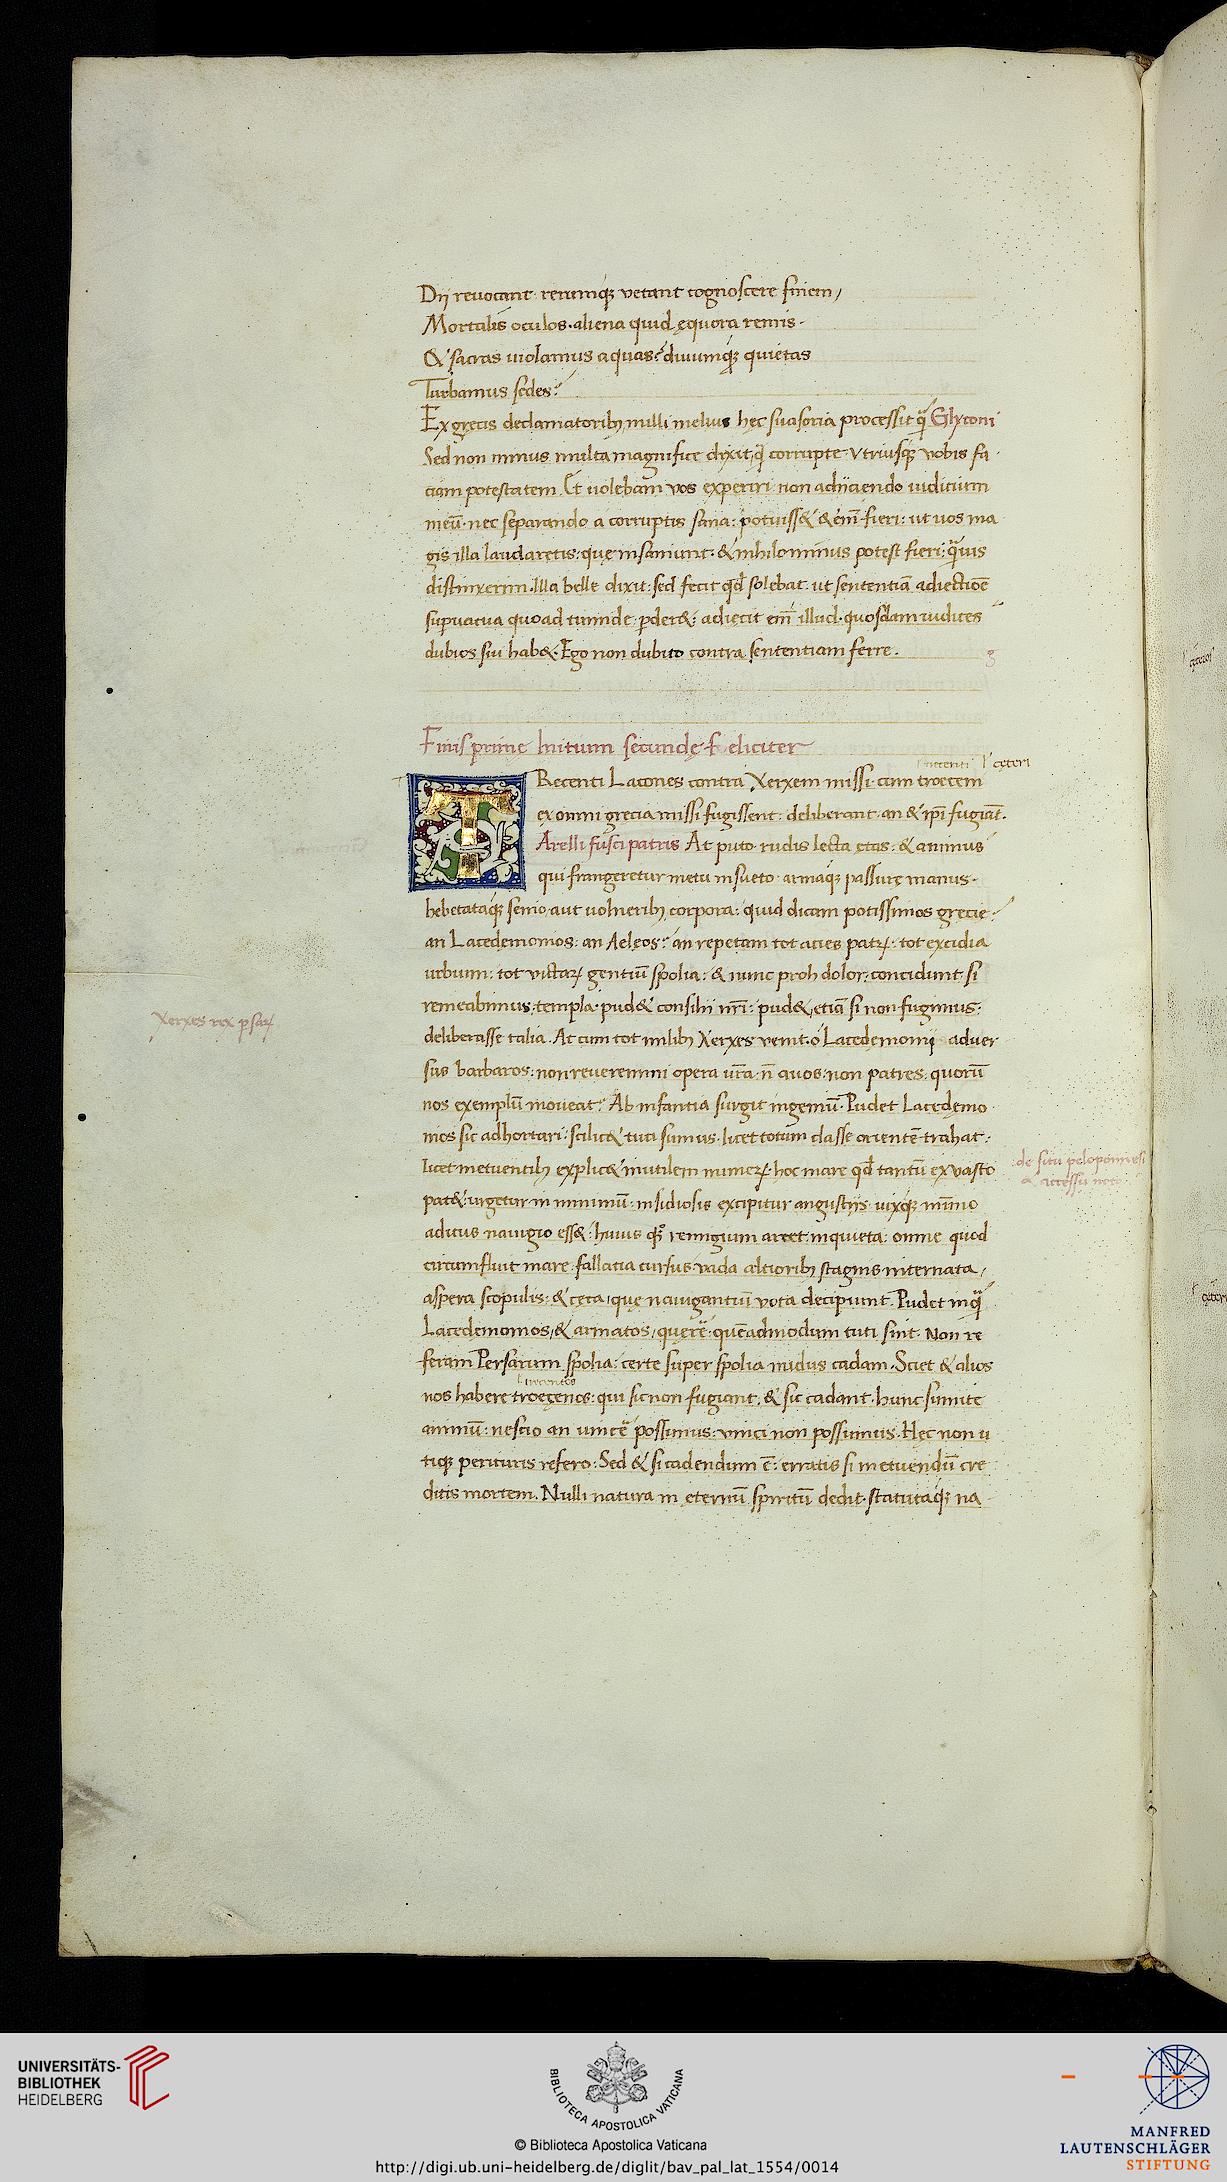 Dij reuocant rerumq; vetant cognoscere finem,
Mortalis oculos. aliena quid ęquora remis.
& sacras uiolamus aquas? diuumq; quietas
Turbamus sedes?
Ex gręcis declamatorib; nulli melius hęc suasoria processit q̃ Glyconi
Sed non minus multa magnifice dixit, q̃ corrupte. Vtriusq; vobis fa
ciam potestatem. Et uolebam vos experiri non adijciendo iudicium
meũ. nec separando a corruptis sana: potuiss& & em̃ fieri: ut uos ma
gis illa laudaretis: que insaniunt. & nihilominus potest fieri: q̃uis
distinxerim. illa belle dixit: sed fecit qd̃ solebat. ut sententiã adiectiõe
supuacua quoad tumide pder&: adiecit em̃ illud. quosdam iudices
dubios siu hab&. Ego non dubito contra sententiam ferre.
g
Finis prime Initium secundę Feliciter
trecenti l' cęteri
TRecenti Lacones contra Xerxem missi. cum troecem
ex omni gręcia missi fugissent: deliberant an & ip̃i fugiãt.
Arelli fusci patris At puto rudis lecta ętas: & animus
qui frangeretur metu insueto armaq; passurę manus.
hebetataq; senio, aut uolnerib; corpora: quid dicam potissimos gręcie?
an Lacedemonios: an Aeleos? an repetam tot acies patrꝝ: tot excidia
urbium: tot victaꝝ gentiũ spolia: & nunc proh dolor: concidunt si
remeabimus. templa. pud& consilii nr̃i: pud&, etiã si non fugimus:
deliberasse talia. At cum tot milib; Xerxes venit. ô Lacedemonij aduer
Xerxes rex psaꝝ
sus barbaros: non reueremini opera ur̃a: ñ auos: non patres: quorũ
nos exemplũ moueat? Ab infantia surgit ingeniũ. Pudet Lacedemo
nios sic adhortari: scilic& tuti sumus. licet totum classe orientẽ trahat:
licet metuentib; explic& inutilem numerꝝ. hoc mare qd̃ tantũ ex vasto
de situ peloponnesi
& accessu nota
pat&: urgetur in minimũ: insidiosis excipitur angustijs uixq; mĩmo
aditus nauigio ess&: huius q; remigium arcet inquieta: omne quod
circumfluit mare: fallatia cursus vada altiorib; stagnis internata,
aspera scopulis: & cęta, quę nauigantiũ vota decipiunt. Pudet inq̃
Lacedemonios, & armatos, querẽ: quẽadmodum tuti sint. Non re
feram Persarum spolia: certe super spolia nudus cadam. Sciet & alios
l' trecentos
nos habere troęcenos: qui sic non fugiant, & sic cadant. hunc sumite
animũ: nescio an uincẽ possimus: vinci non possumus. Hęc non u
tiq; perituris refero: Sed & si cadendum ẽ: erratis si metuendũ cre
ditis mortem. Nulli natura in ęternũ spiritũ dedit. statutaq; na
UNIVERSITÄTS-
BIBLIOTHEK
HEIDELBERG
BIBLIOTECA APOSTOLICA VATICANA
© Biblioteca Apostolica Vaticana
http://digi.ub.uni-heidelberg.de/diglit/bav_pal_lat_1554/0014
MANFRED
LAUTENSCHLÄGER
STIFTUNG